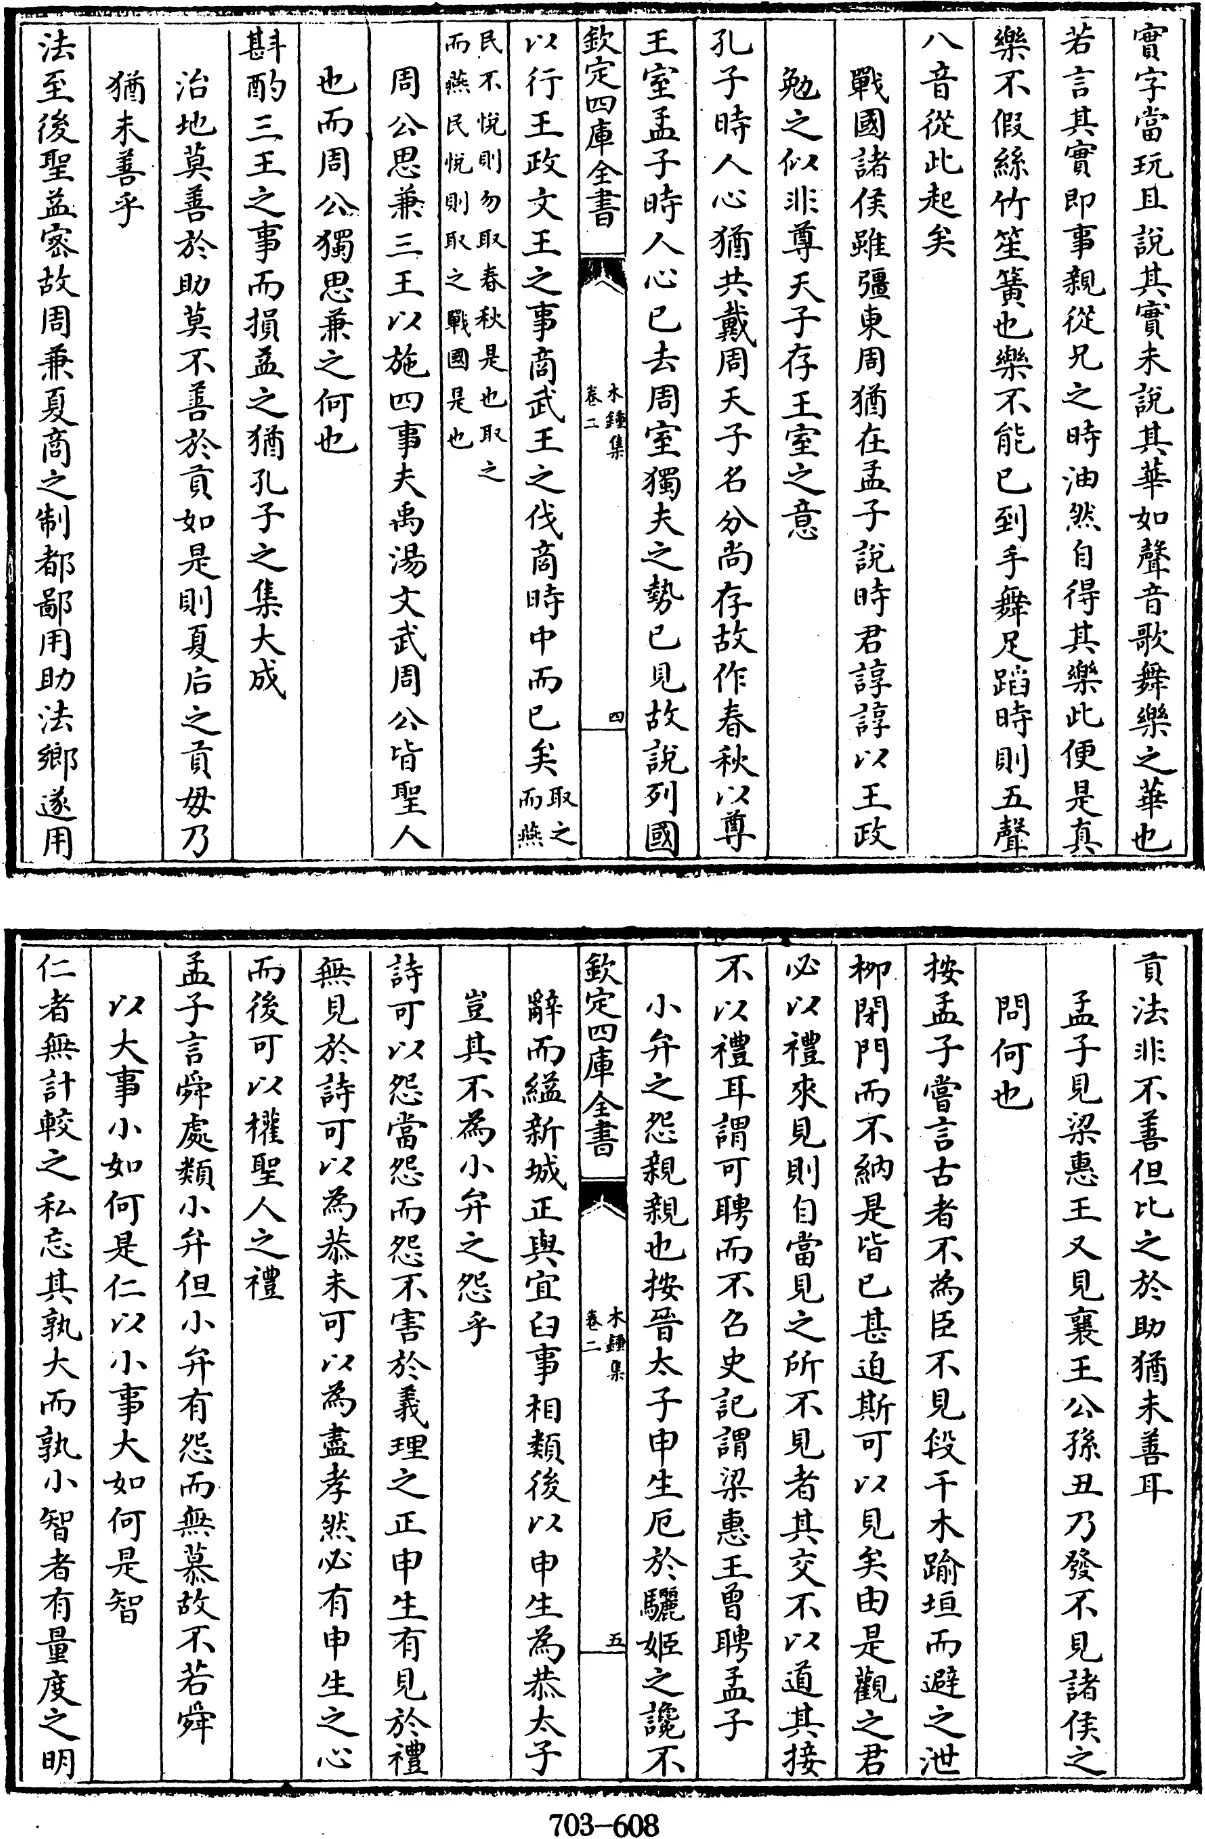 實字當玩且說其實未說其華如聲音歌舞樂之華也
若言其實即事親從兄之時油然自得其樂此便是真
樂不假絲竹笙簧也樂不能已到手舞足蹈時則五聲
八音從此起矣
戰國諸侯雖彊東周猶在孟子說時君諄諄以王政
勉之似非尊天子存王室之意
孔子時人心猶共戴周天子名分尚存故作春秋以尊
王室孟子時人心已去周室獨夫之勢已見故說列國
欽定四庫全書
木鍾集
卷二
四
以行王政文王之事商武王之伐商時中而已矣取之
而燕
民不悅則勿取春秋是也取之
而燕民悅則取之戰國是也
周公思兼三王以施四事夫禹湯文武周公皆聖人
也而周公獨思兼之何也
斟酌三王之事而損益之猶孔子之集大成
治地莫善於助莫不善於貢如是則夏后之貢毋乃
猶未善乎
法至後聖益密故周兼夏商之制都鄙用助法鄉遂用
貢法非不善但比之於助猶未善耳
孟子見梁惠王又見襄王公孫丑乃發不見諸侯之
問何也
按孟子嘗言古者不為臣不見段干木踰垣而避之泄
柳閉門而不納是皆已甚迫斯可以見矣由是觀之君
必以禮來見則自當見之所不見者其交不以道其接
不以禮耳謂可聘而不召史記謂梁惠王曾聘孟子
小弁之怨親親也按晉太子申生厄於驪姬之讒不
欽定四庫全書
木鍾集
卷二
五
辭而縊新城正與宜臼事相類後以申生為恭太子
豈其不為小弁之怨乎
詩可以怨當怨而怨不害於義理之正申生有見於禮
無見於詩可以為恭未可以為盡孝然必有申生之心
而後可以權聖人之禮
孟子言舜處類小弁但小弁有怨而無慕故不若舜
以大事小如何是仁以小事大如何是智
仁者無計較之私忘其孰大而孰小智者有量度之明
703-608